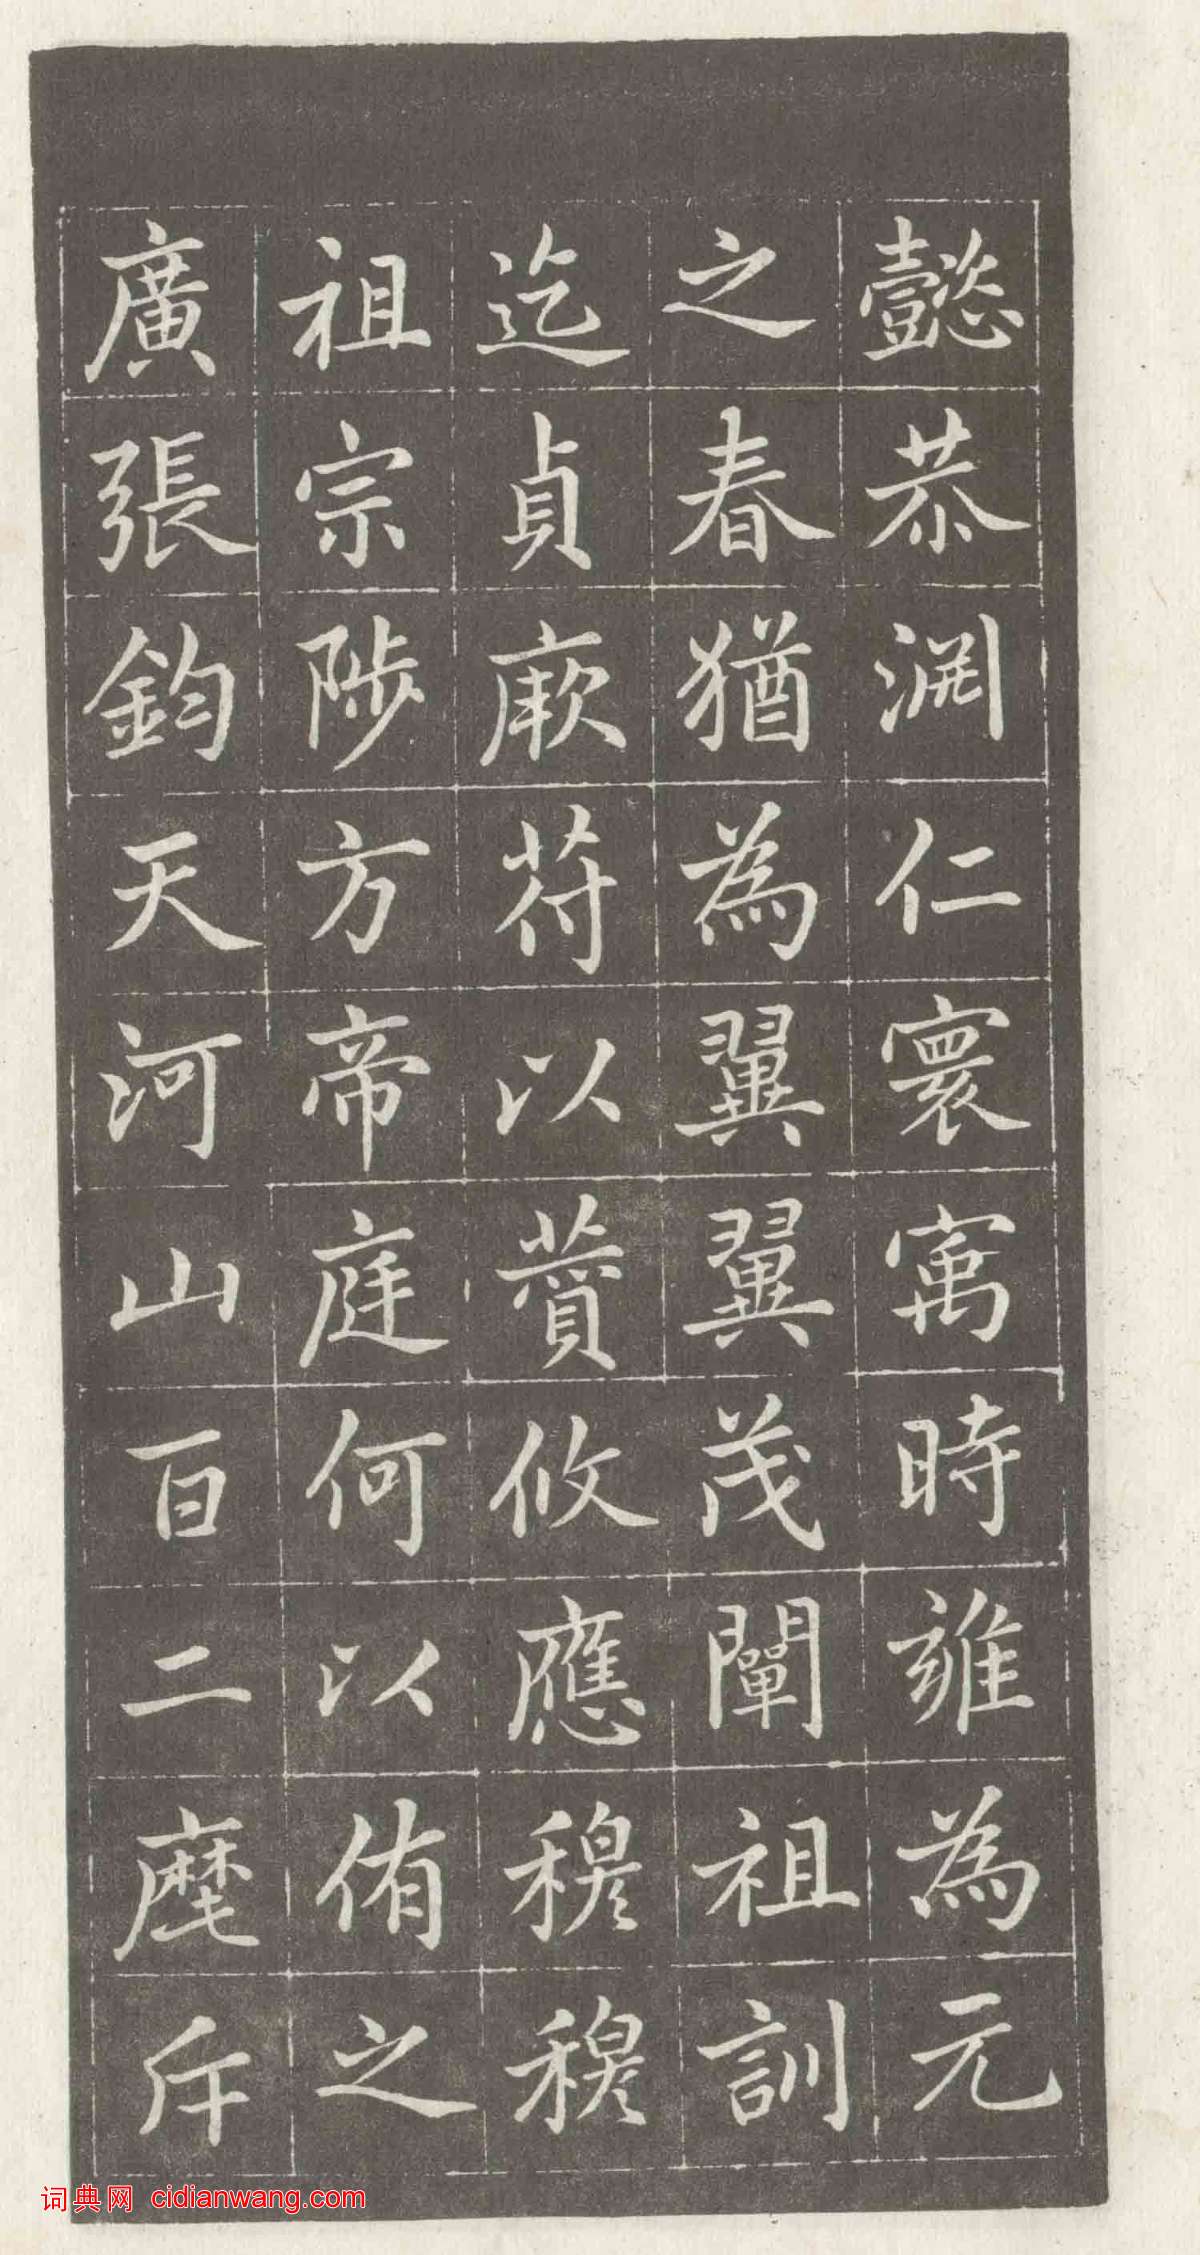 懿恭淵仁寰寓時雍為元
之春猶為翼翼茂闡祖訓
迄貞厥苻以攸應穆穆
祖宗陟方帝庭何以侑之
廣張鈞天河山百二麾斥
词典网 cidianwang.com